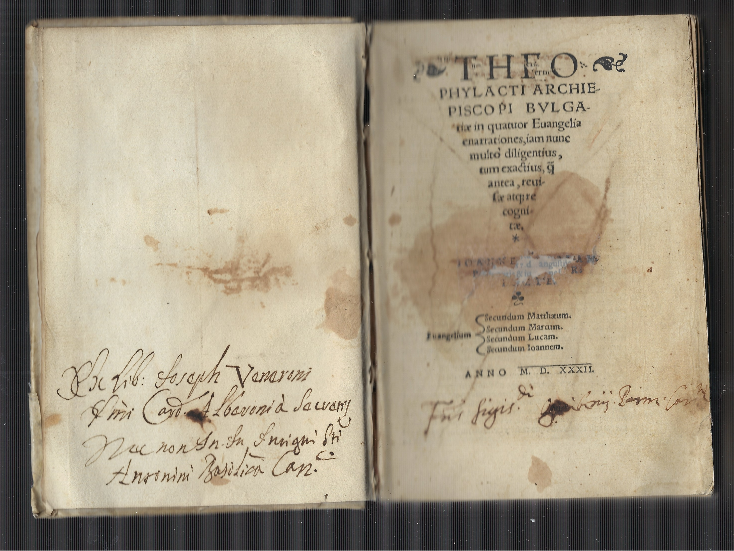 Ex Lib: Joseph Veneroni
Emi Card. Alberonij Secretrij
Nec non In In Insigni Sti
Antonini Basilica Can.
THEO
PHYLACTI ARCHIE-
PISCOPI BVLGA-
riæ in quatuor Euangelia
enarrationes, iam nunc
multo diligentius,
tum exactius, q̃
antea, reui-
sæ atq; re
cogni-
tæ.
*
Euangelium
Secundum Matthæum.
Secundum Marcum.
Secundum Lucam.
Secundum Ioannem.
ANNO M. D. XXXII.